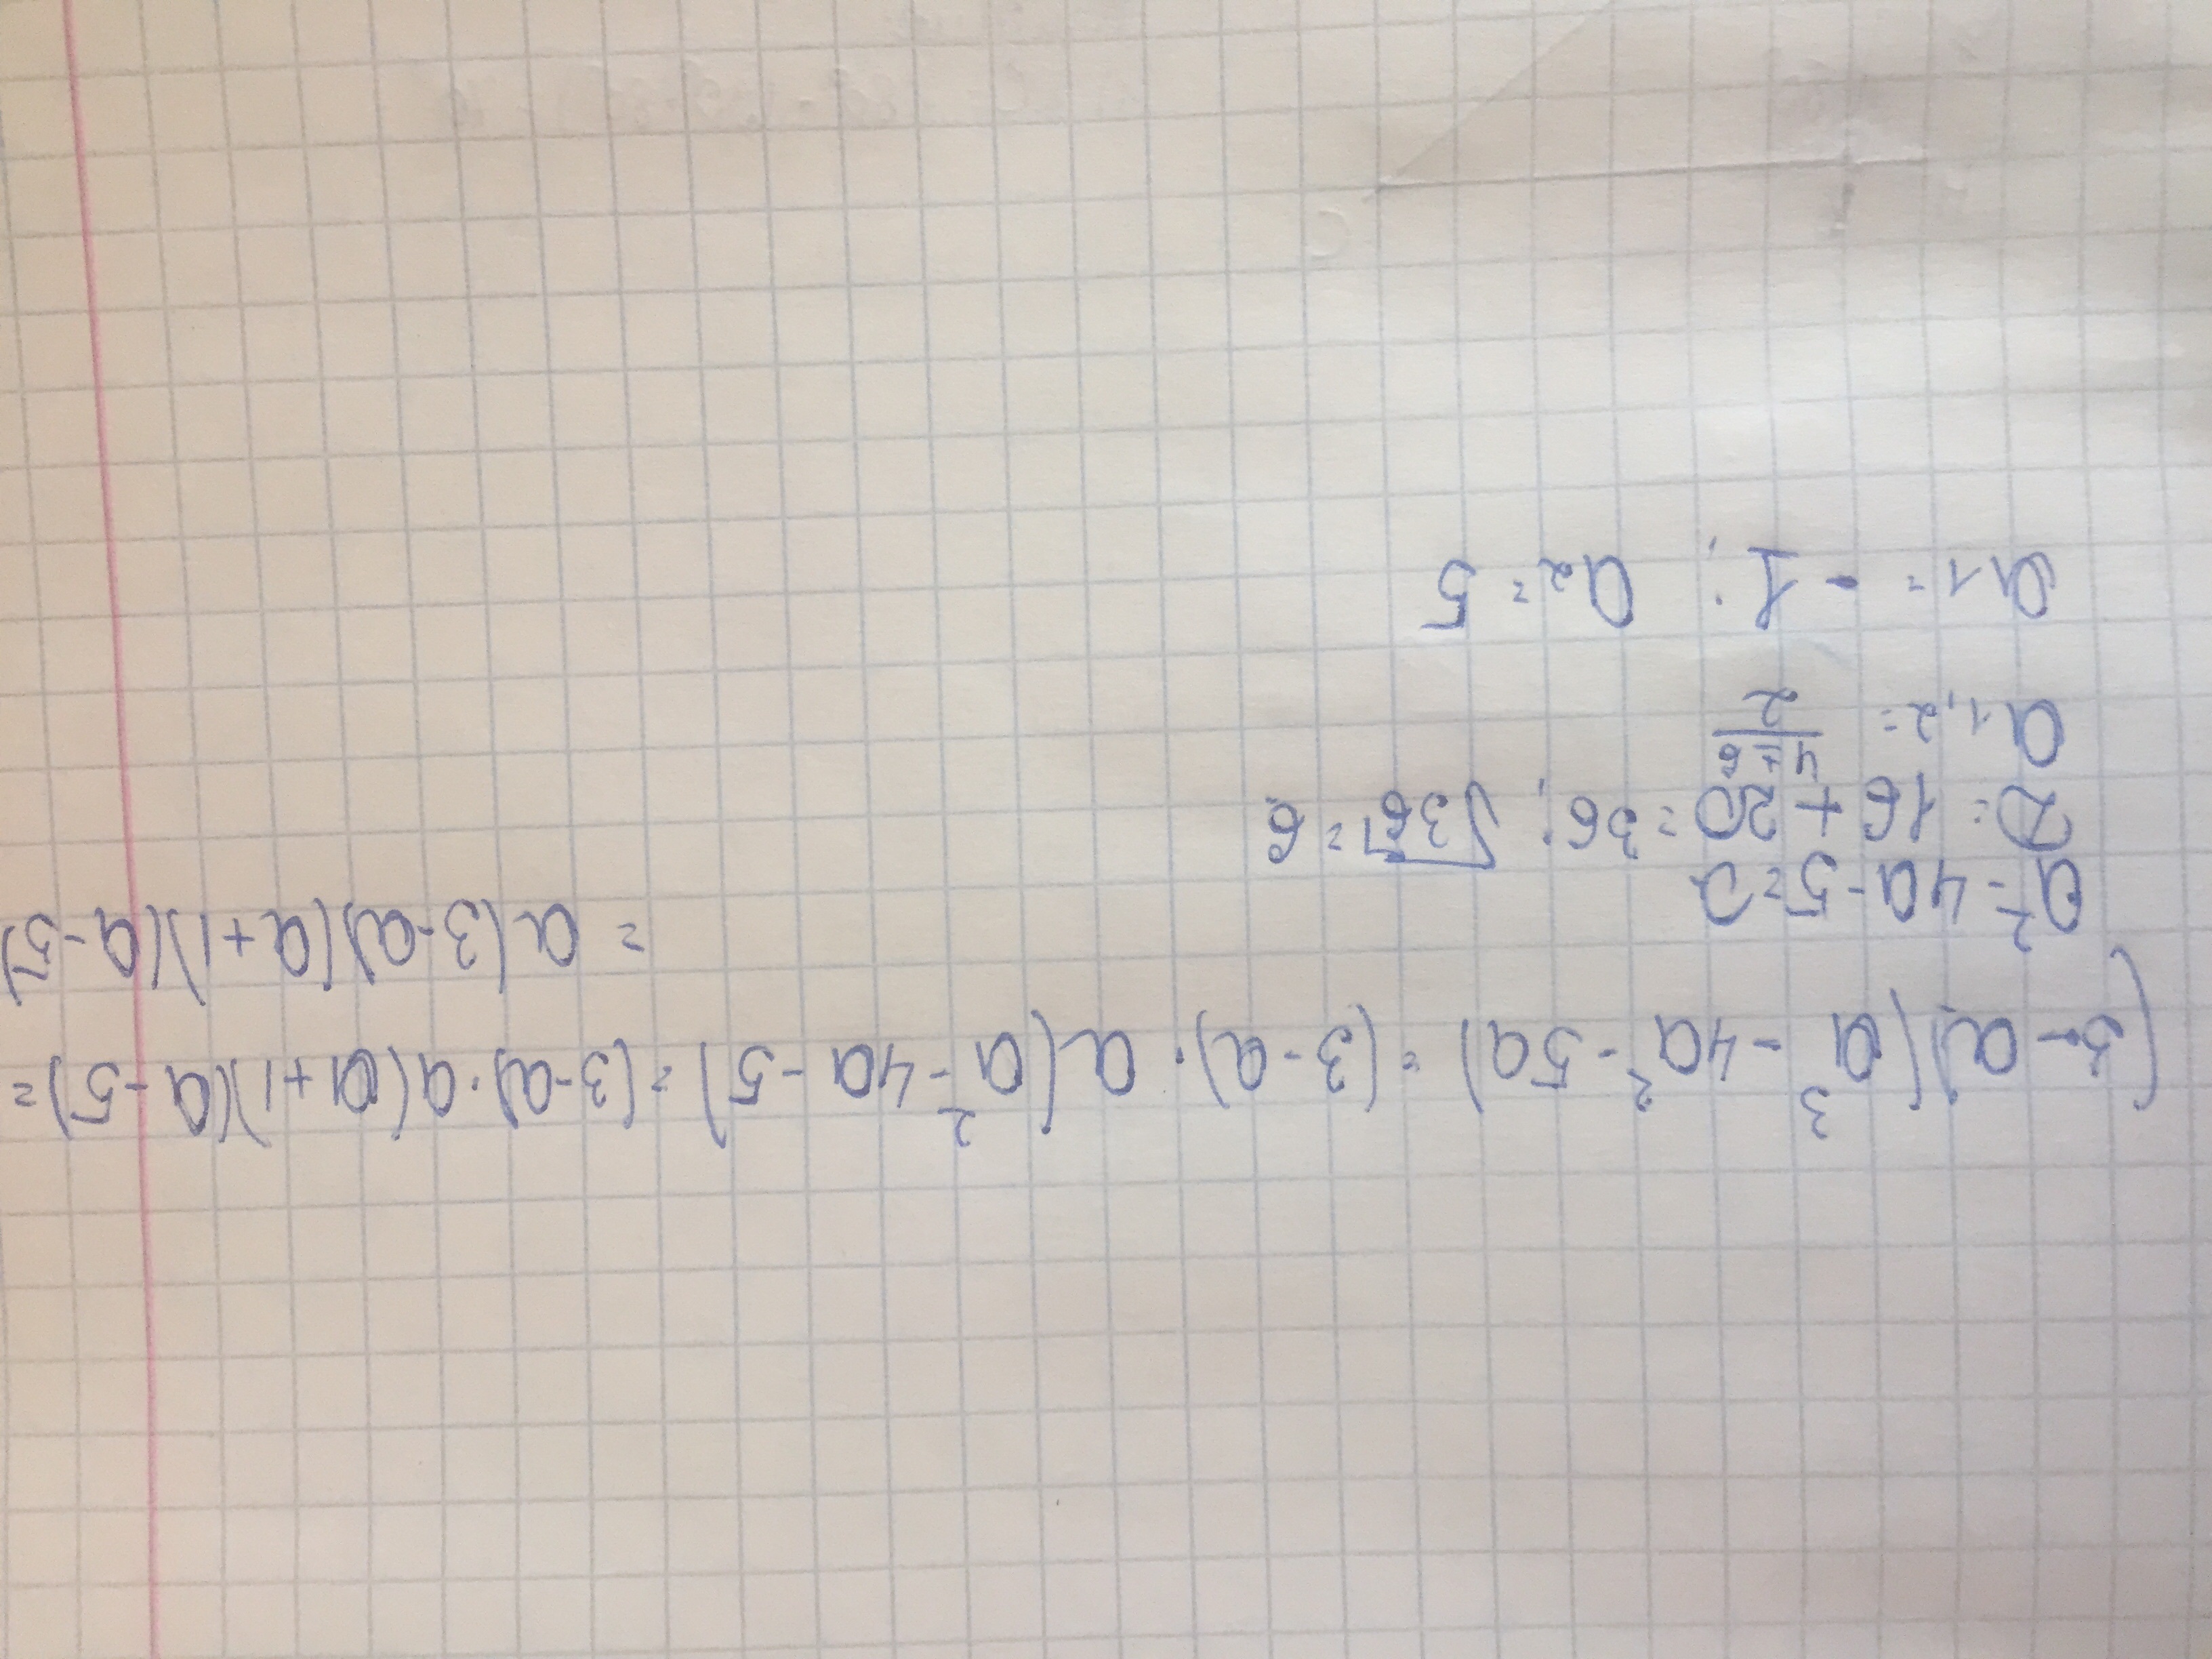 (3-a)(a³-4a²-5a)=(3-a)·a(a²-4a-5)=(3-a)·a(a+1)(a-5)=
=a(3-a)(a+1)(a-5)
a²-4a-5=0
D=16+20=36; √36=6
a1,2=(4∓6)/2
a1=-1; a2=5